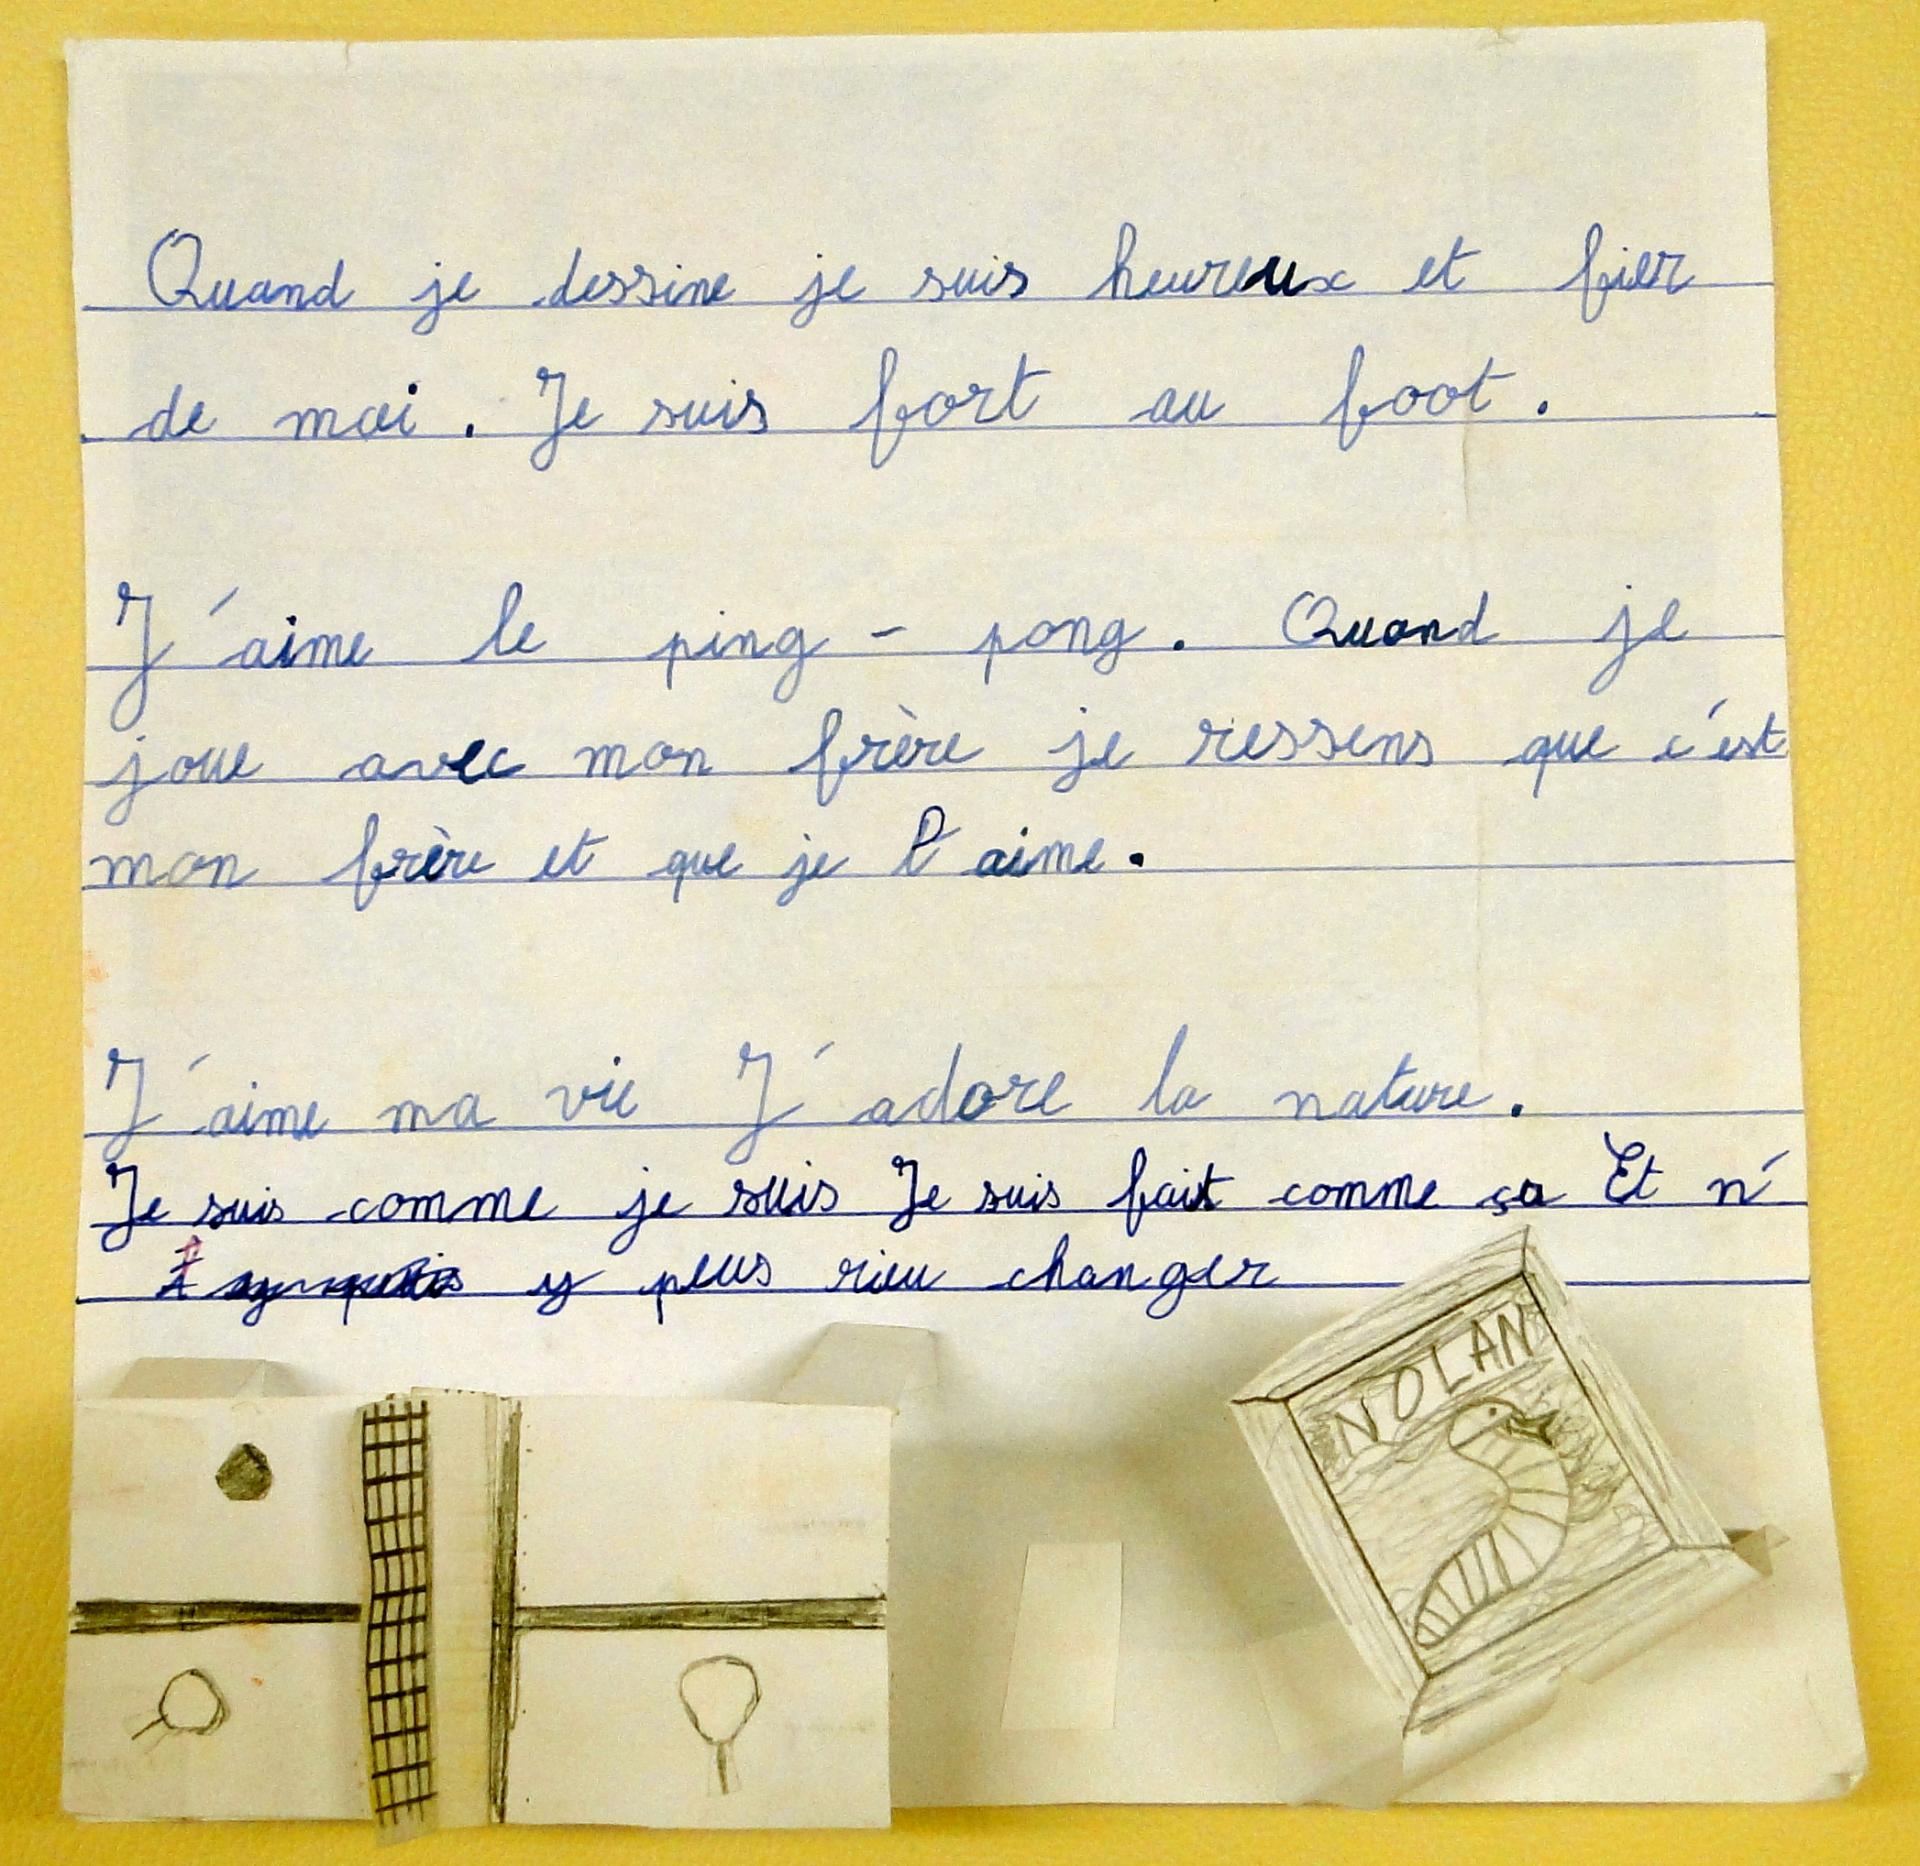 Quand je dessine je suis heureux et fier
de moi. Je suis fort au foot.
J'aime le ping-pong. Quand je
joue avec mon frère je ressens que c'est
mon frère et que je l'aime.
J'aime ma vie J'adore la nature.
Je suis comme je suis Je suis fait comme ça Et n'
y peus rien changer
NOLAN